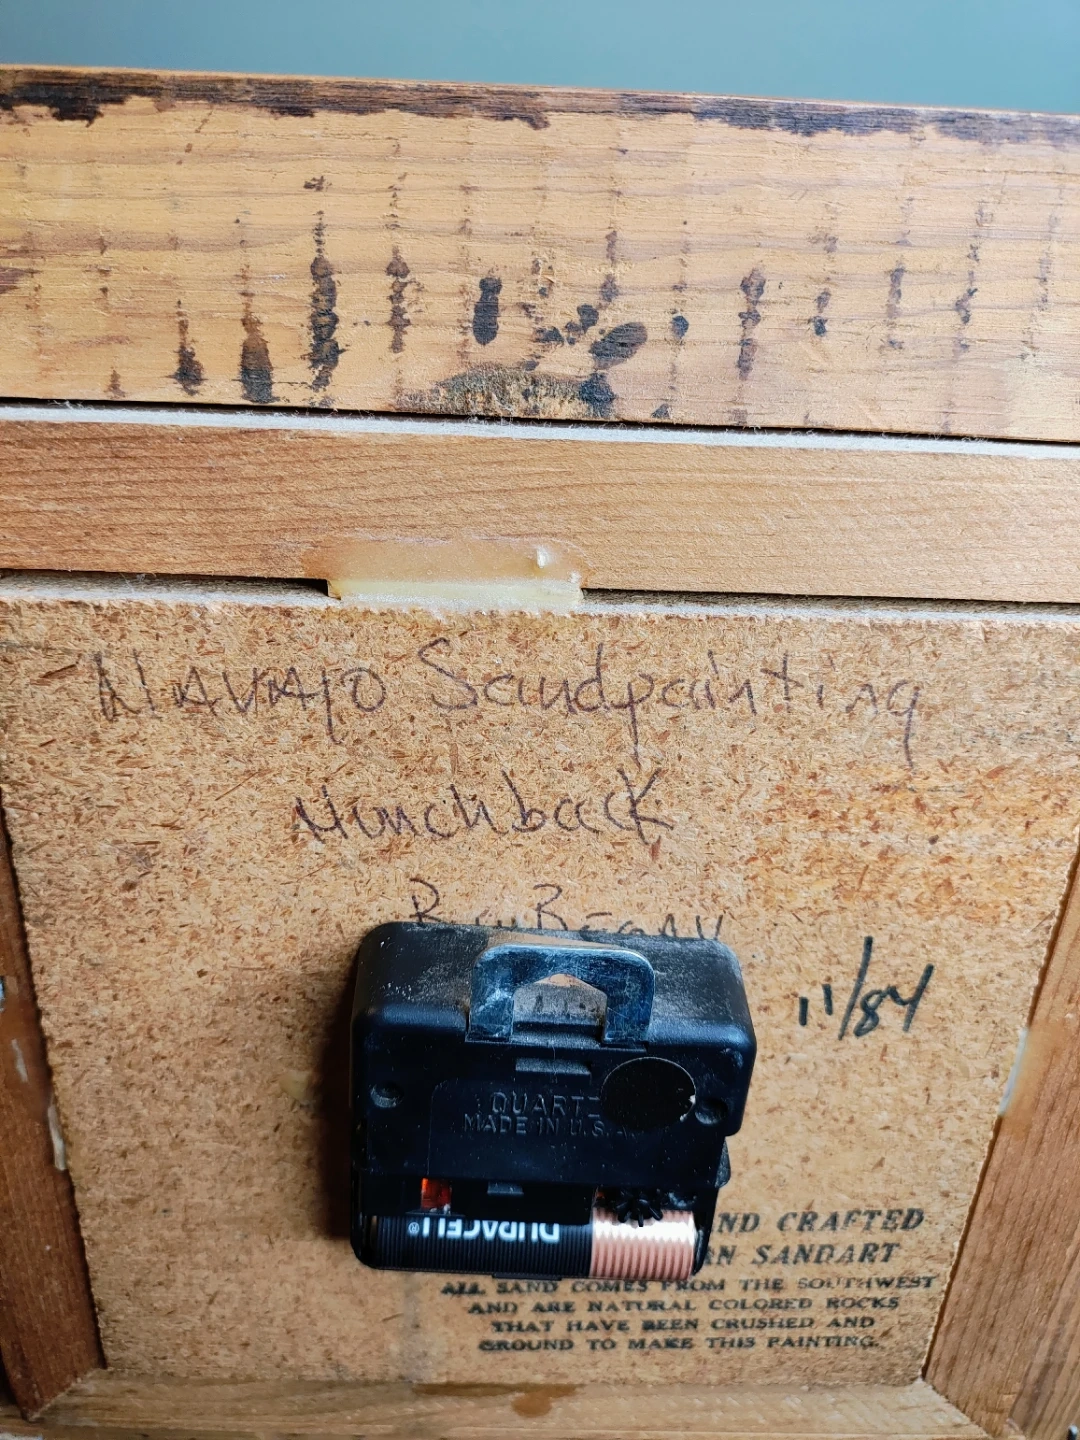 NAVAJO Sandpainting
Hunchback
BEGAY
11/84
QUARTZ
MADE IN U.S.A.
DURACELL®
ND CRAFTED
RN SANDART
ALL SAND COMES FROM THE SOUTHWEST
AND ARE NATURAL COLORED ROCKS
THAT HAVE BEEN CRUSHED AND
GROUND TO MAKE THIS PAINTING.